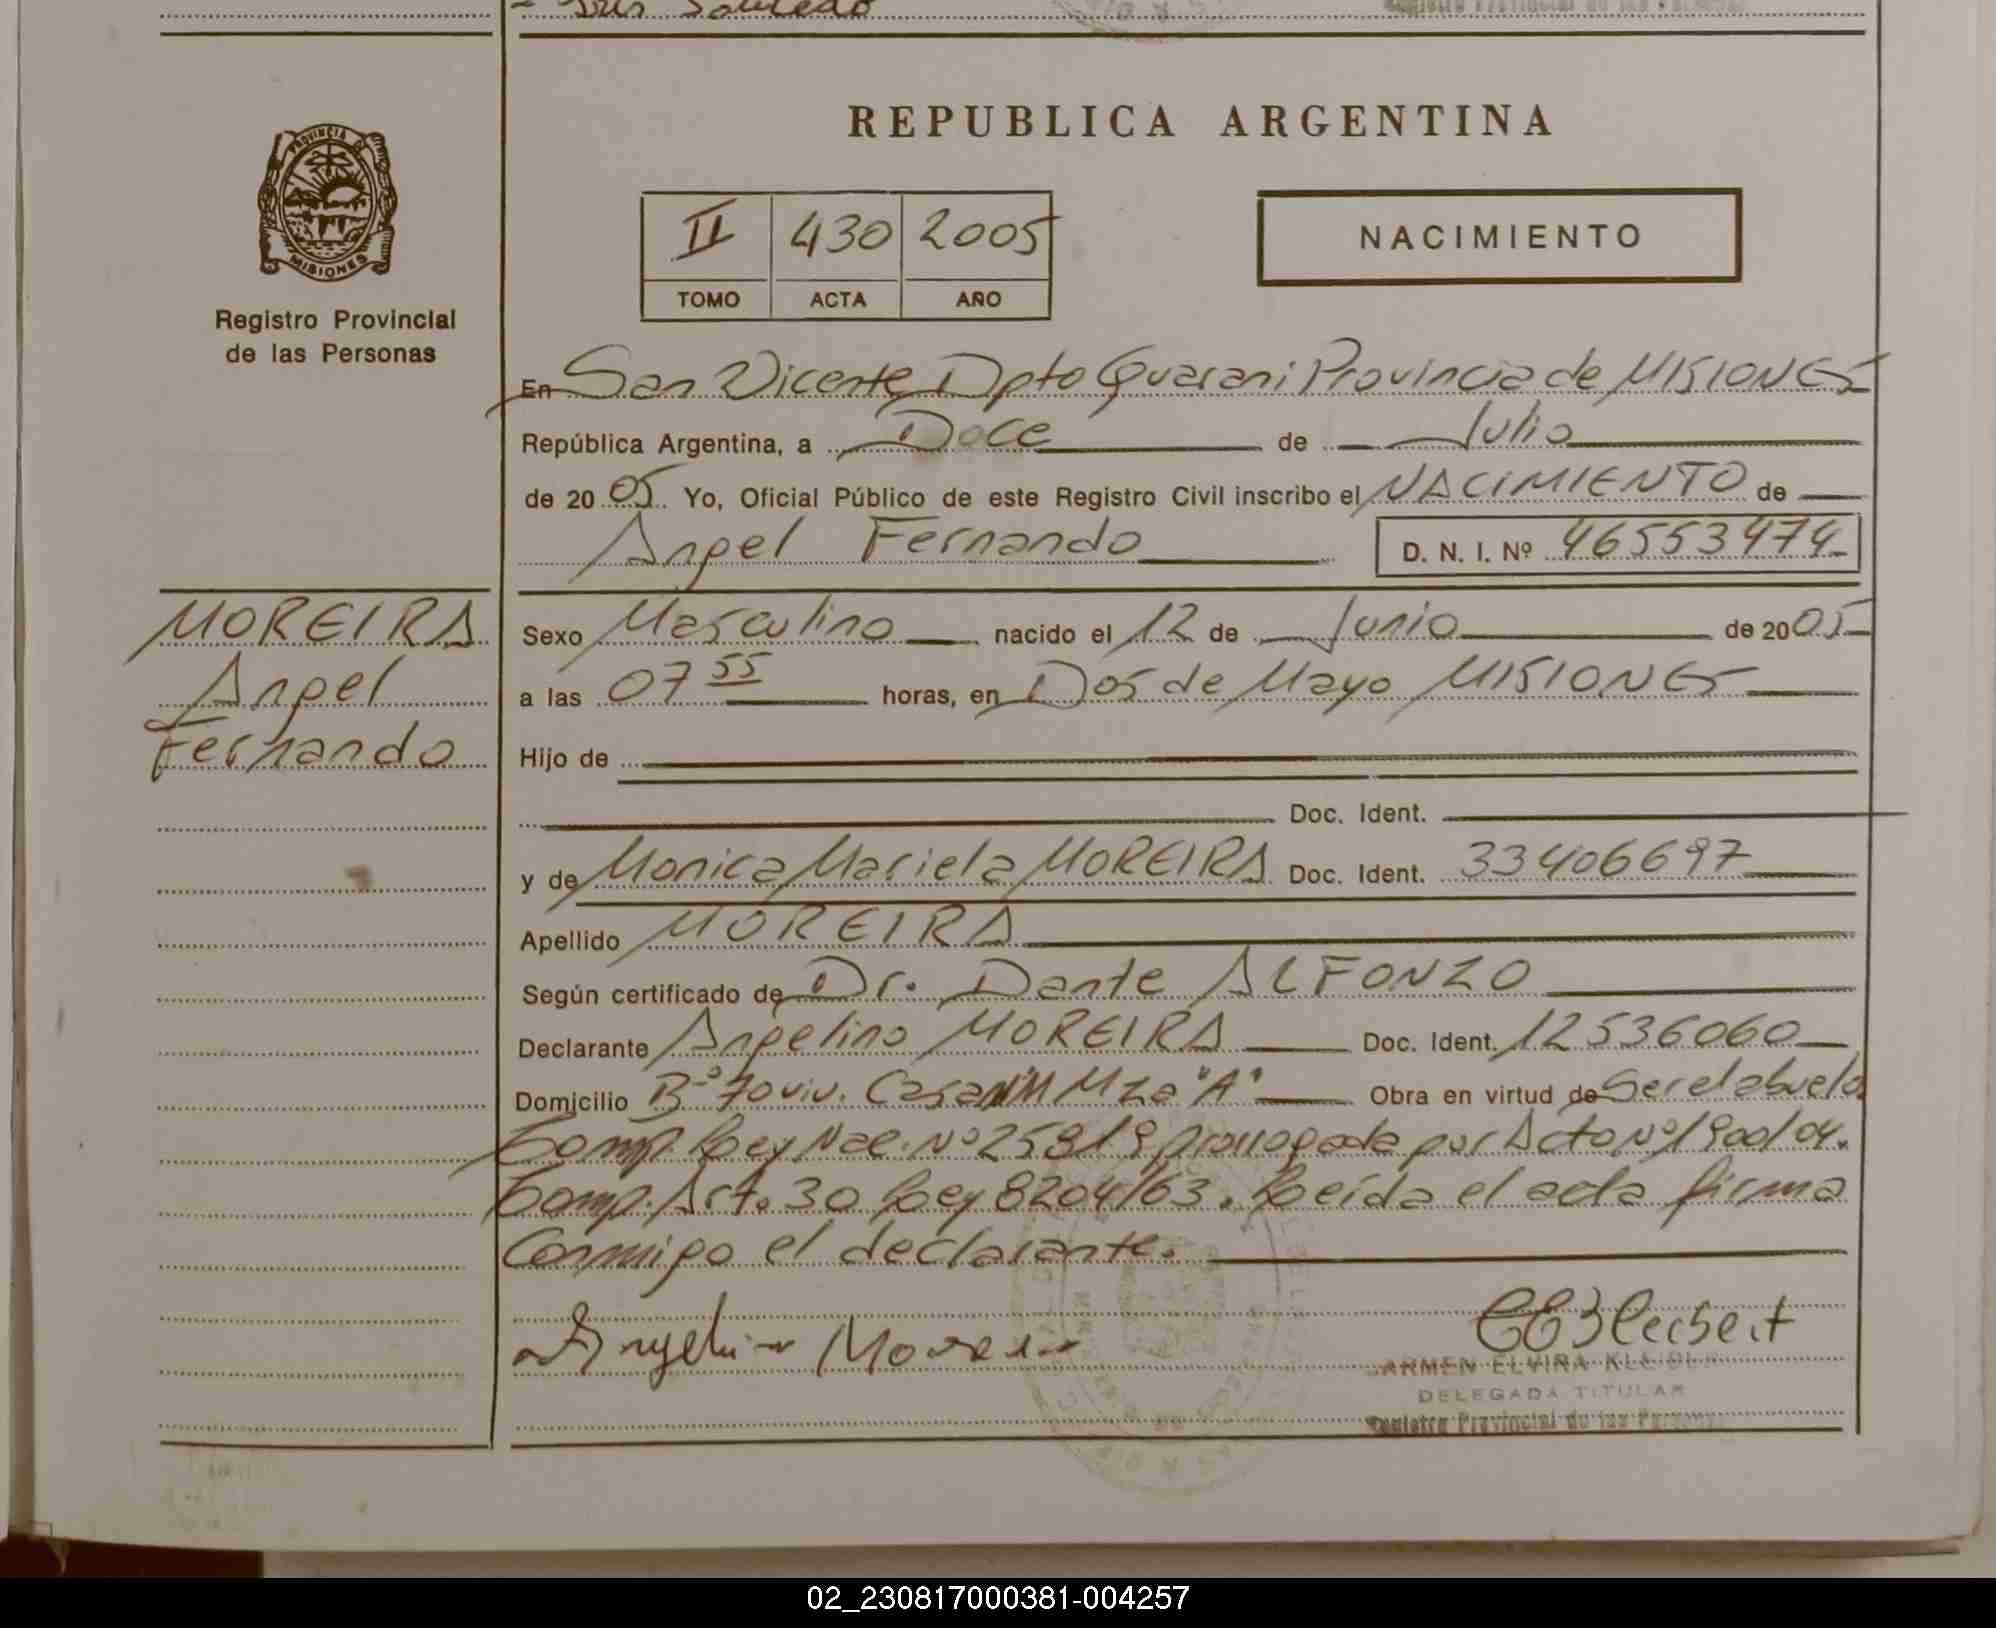 REPUBLICA ARGENTINA
PROVINCIA DE
MISIONES
Registro Provincial
de las Personas
II 430 2005
TOMO ACTA AÑO
NACIMIENTO
En San Vicente Dpto Guarani Provincia de MISIONES
República Argentina, a Doce de Julio
de 2005 Yo, Oficial Público de este Registro Civil inscribo el NACIMIENTO de
Angel Fernando D. N. I. Nº 46553474
MOREIRA
Angel
Fernando
Sexo Masculino nacido el 12 de Junio de 2005
a las 07 55 horas, en Dos de Mayo MISIONES
Hijo de
Doc. Ident.
y de Monica Mariela MOREIRA Doc. Ident. 33406697
Apellido MOREIRA
Según certificado de Dr. Dante ALFONZO
Declarante Angelino MOREIRA Doc. Ident. 12536060
Domicilio Bº 70 viv. Casa Mza "A" Obra en virtud de Ser el abuelo
Comp. Ley Nac. Nº 25819 prorrogada por Acto Nº 1900/04.
Comp. Art. 30 Ley 8204/63. Leída el acta firma
Conmigo el declarante.
ARMEN ELVIRA
DELEGADA TITULAR
Registro Provincial de las Personas
02_230817000381-004257